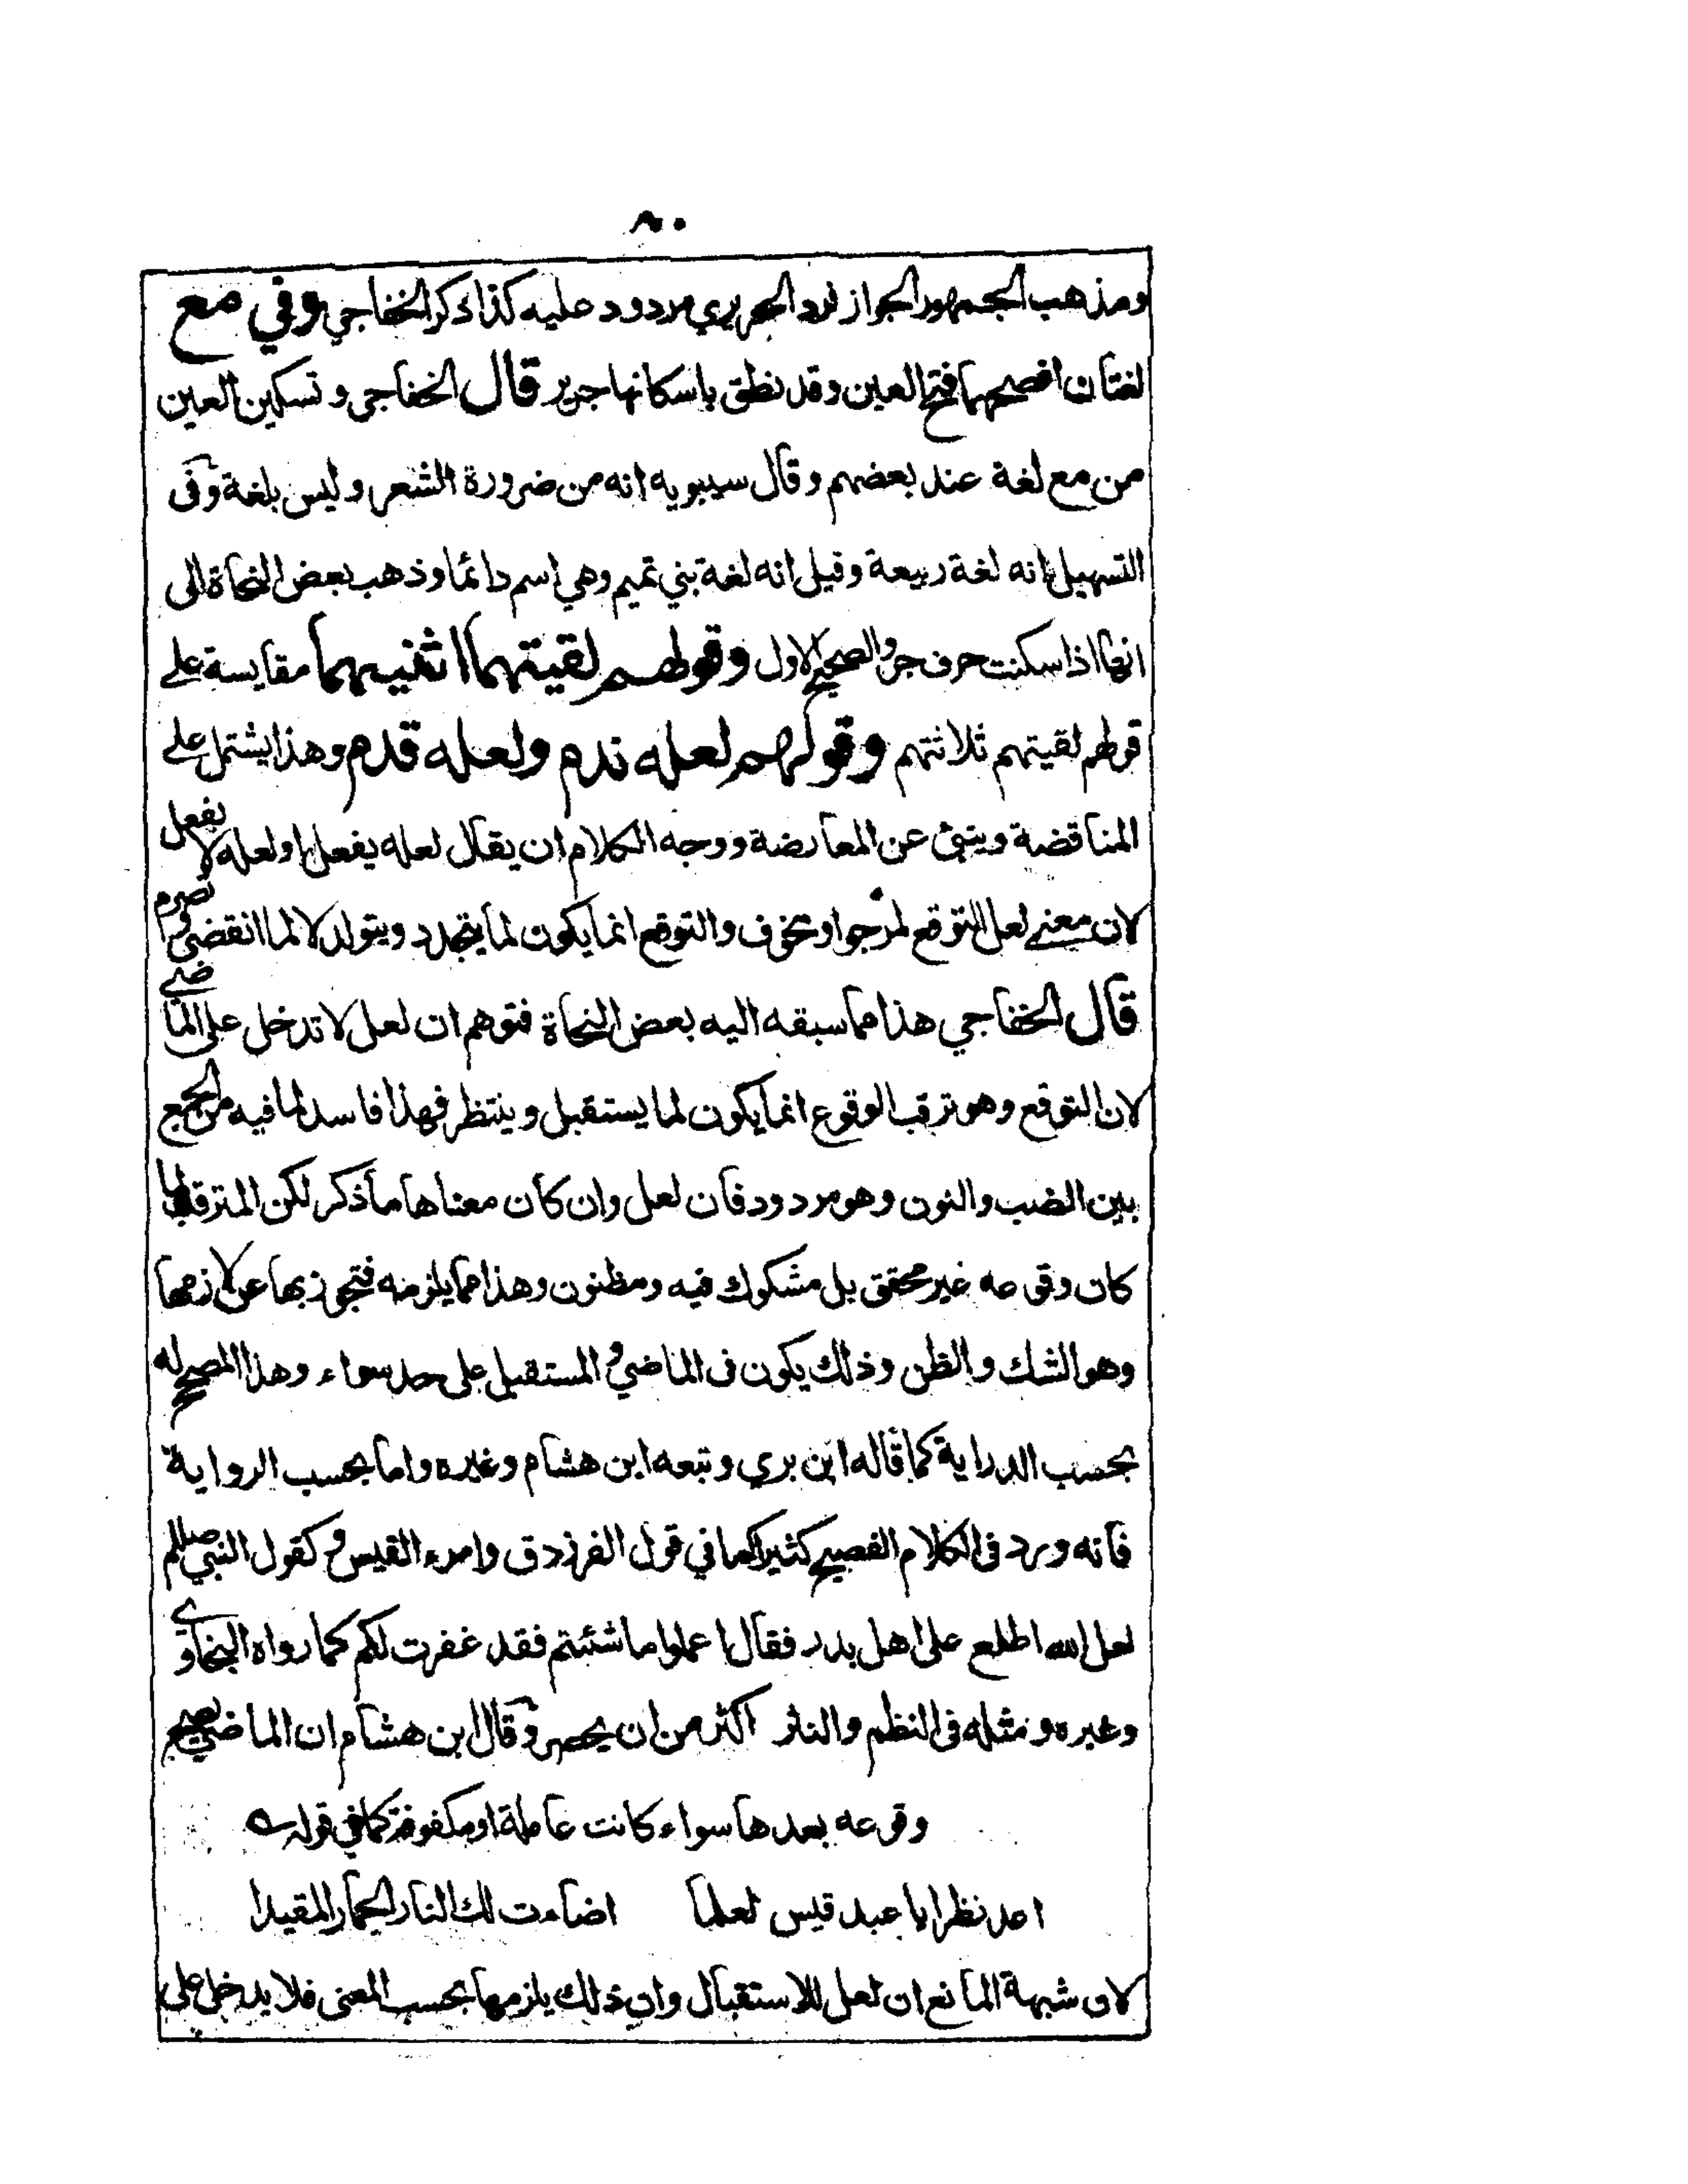 ٨٠
ومذهب الجمهور الجواز فرد الحريري مردود عليه كذا ذكر الخفاجي وفي مع
لغتان افصحهما فتح العين وقد نطق باسكانها جرير قال الخفاجي وتسكين العين
من مع لغة عند بعضهم وقال سيبويه انه من ضرورة الشعر وليس بلغة وفى
التسهيل انه لغة ربيعة وقيل انه لغة بني تميم وهي اسم دائما وذهب بعض النحاة الى
انها اذا سكنت حرف جر والصحيح الاول وقولهم لقيتهما اثنيهما مقايسة على
قولهم لقيتهم ثلاثتهم وقولهم لعله ندم ولعله قدم وهذا يشتمل على
المناقضة وينبئ عن المعارضة ووجه الكلام ان يقال لعله يفعل او لعله لا يفعل
لان معنى لعل التوقع لمرجو او مخوف والتوقع انما يكون لما يتجدد ويتولد لا لما انقضى وتصرم
قال الخفاجي هذا مما سبقه اليه بعض النحاة فتوهم ان لعل لا تدخل على الماضي
لان التوقع وهو ترقب الوقوع انما يكون لما يستقبل وينتظر فهذا فاسد لما فيه من الجمع
بين الضب والنون وهو مردود فان لعل وان كان معناها ما ذكر لكن المترقب لما
كان وقوعه غير محقق بل مشكوك فيه ومظنون وهذا مما يلزمه فتجوز بها عن لازمها
وهو الشك والظن وذلك يكون فى الماضي والمستقبل على حد سواء وهذا المصحح له
بحسب الدراية كما قاله ابن بري وتبعه ابن هشام وغيره واما بحسب الرواية
فانه ورد فى الكلام الفصيح كثيرا كما في قول الفرزدق وامرء القيس وكقول النبي صللم
لعل الله اطلع على اهل بدر فقال اعملوا ما شئتم فقد غفرت لكم كما رواه البخاري
وغيره ومثله فى النظم والنثر اكثر من ان يحصر وقال ابن هشام ان الماضي يصح
وقوعه بعدها سواء كانت عاملة او مكفوفة كما في قوله
اعد نظرا يا عبد قيس لعلما اضاءت لك النار الحمار المقيدا
لان شبهة المانع ان لعل للاستقبال وان ذلك يلزمها بحسب المعنى فلا يدخل على